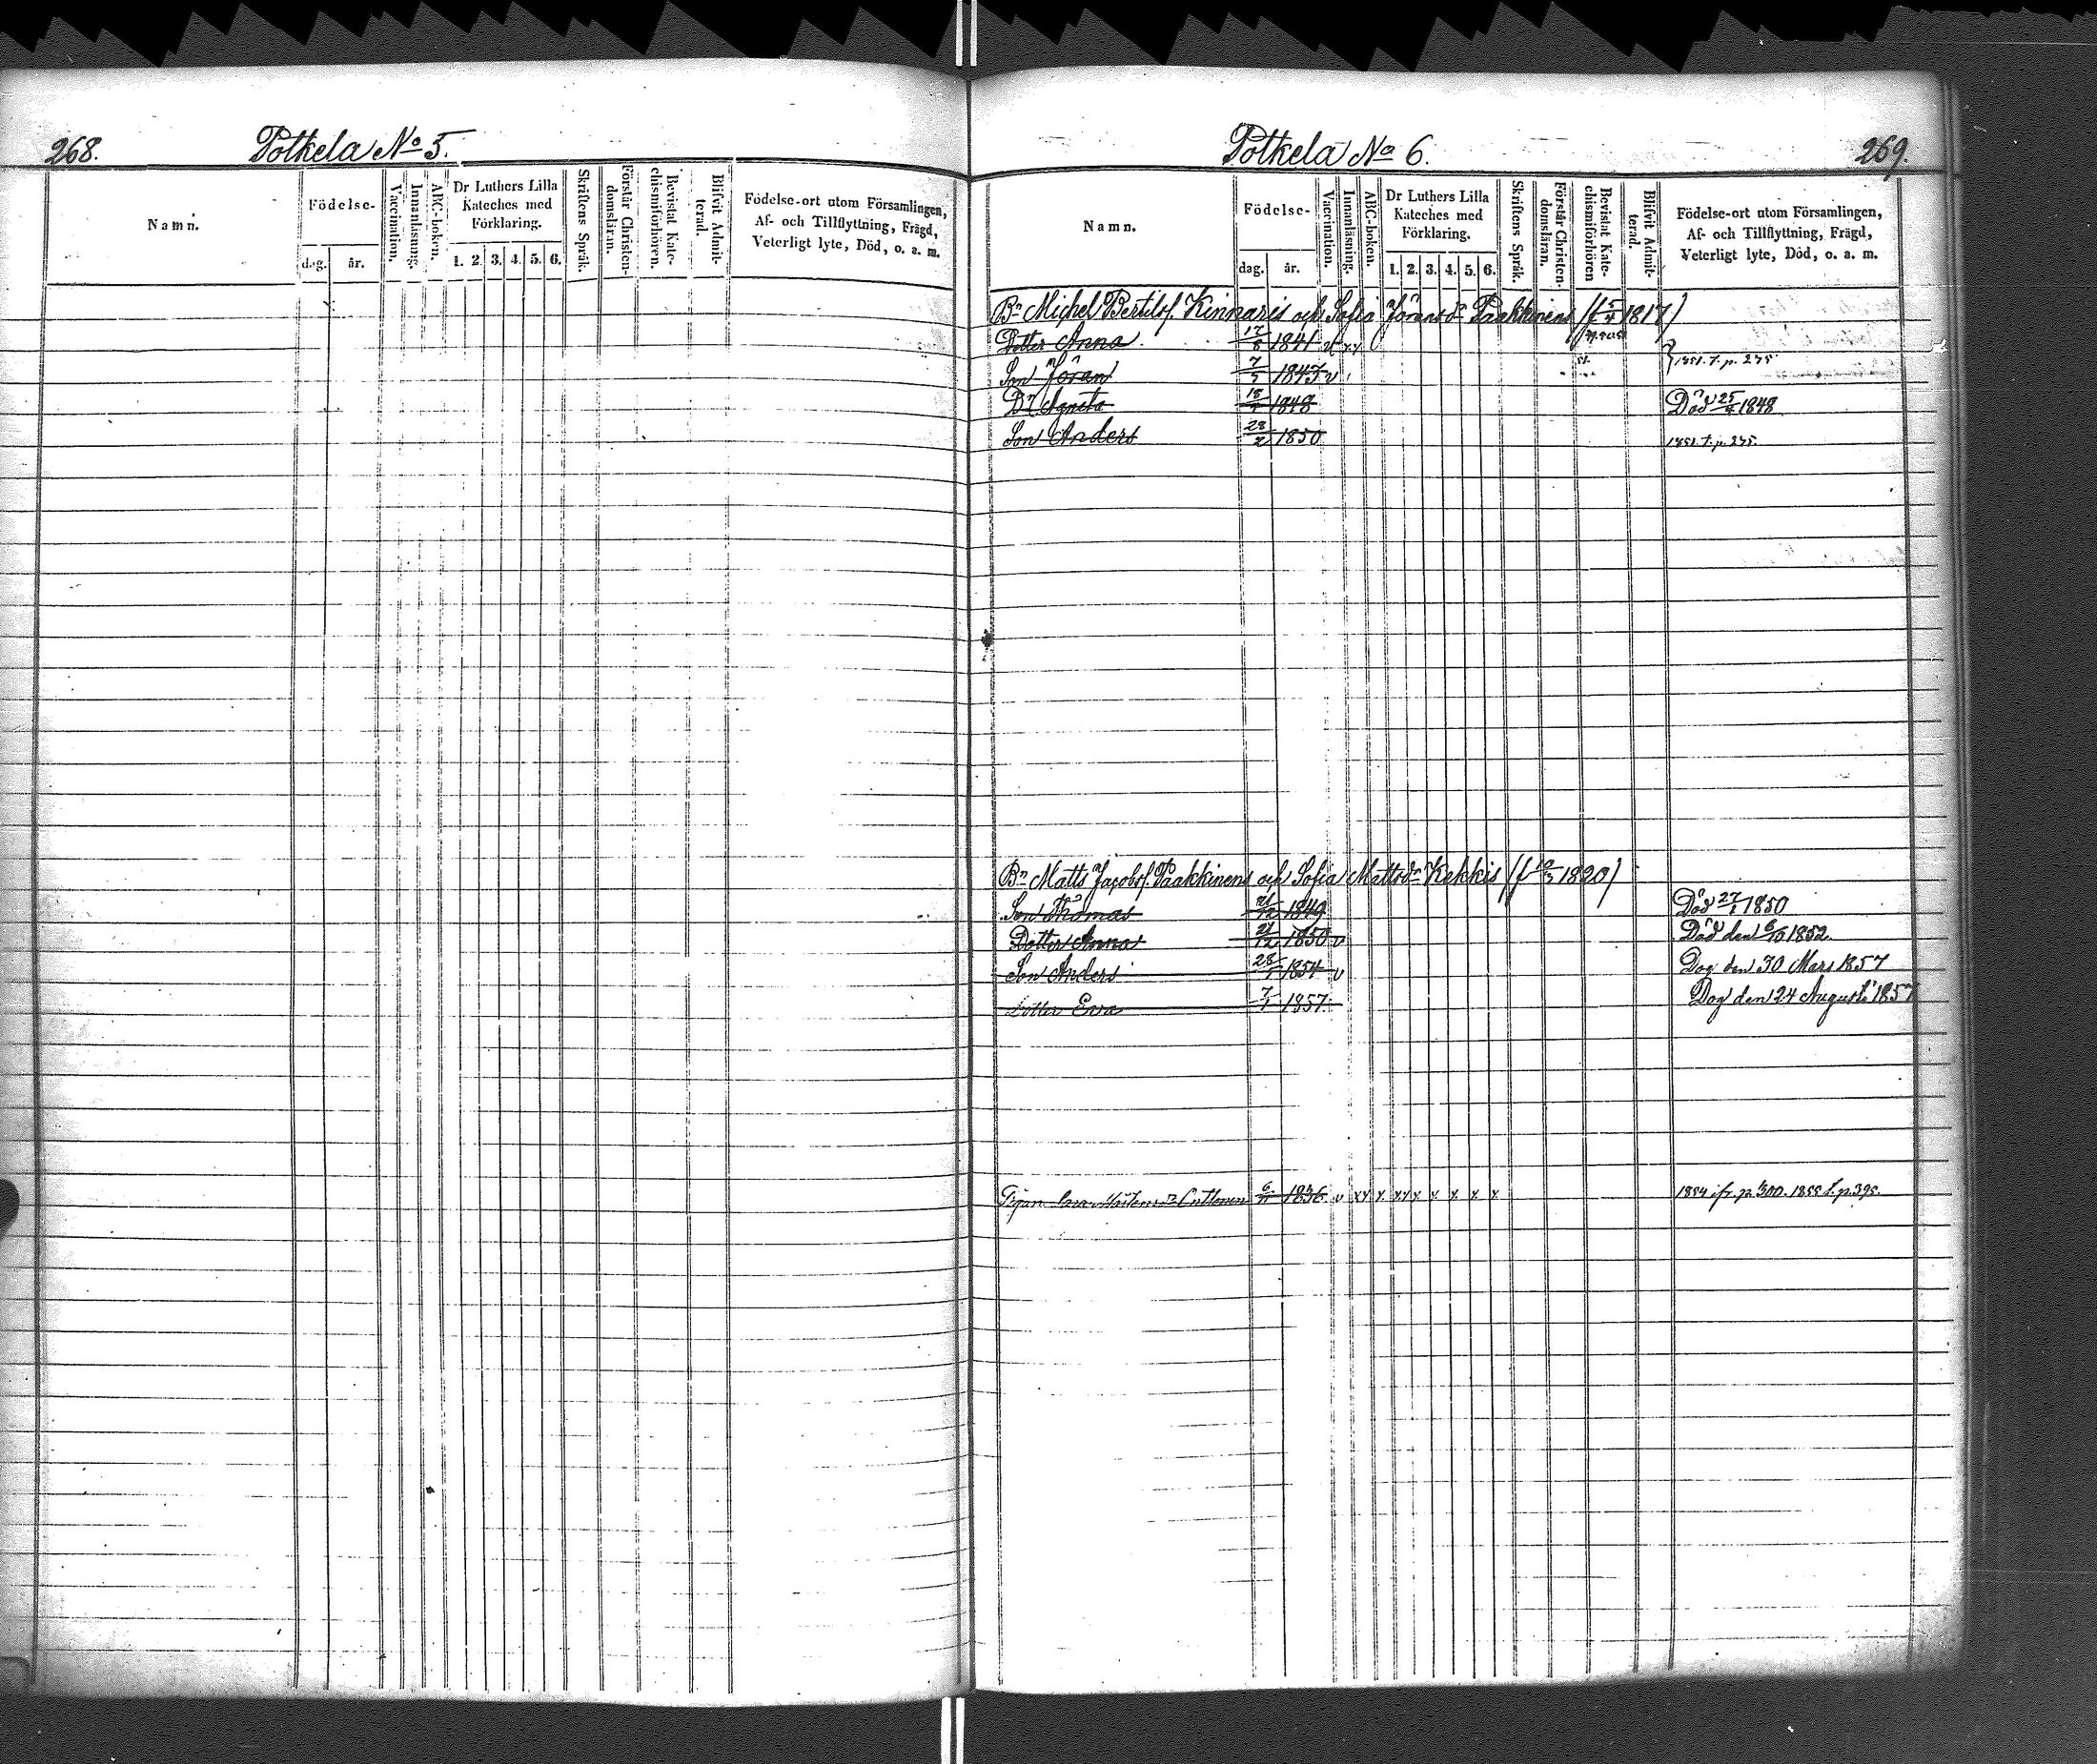 268. Potkela No 5.
Namn.
Födelse-
dag. år.
Vaccination.
Innanläsning.
ABC-boken.
Dr Luthers Lilla
Kateches med
Förklaring.
1. 2. 3. 4. 5. 6.
Skriftens Språk.
Förstår Christen-
domsläran.
Bevistat Kate-
chismiförhören.
Blifvit Admit-
terad.
Födelse-ort utom Församlingen,
Af- och Tillflyttning, Frägd,
Veterligt lyte, Död, o. a. m.
Potkela No 6. 269.
Namn.
Födelse-
dag. år.
Vaccination.
Innanläsning.
ABC-boken.
Dr Luthers Lilla
Kateches med
Förklaring.
1. 2. 3. 4. 5. 6.
Skriftens Språk.
Förstår Christen-
domsläran.
Bevistat Kate-
chismiförhören
Blifvit Admit-
terad.
Födelse-ort utom Församlingen,
Af- och Tillflyttning, Frägd,
Veterligt lyte, Död, o. a. m.
Bn Michel Bertilsf. Kinnaris och Sofia Jöransdr Paakkinens (f 5/4 1817)
Dotter Anna 17/8 1841 v xx
Son Jöran 7/5 1843 v 1851. t. p. 275
Dr Agneta 18/1 1848 Död 25/4 1848
Son Anders 28/2 1850 1851. t. p. 275.
Bn Matts Jacobsf. Paakkinens och Sofia Mattsdr Kekkis (f 10/3 1820)
Son Thomas 21/12 1849 Död 27/1 1850
Dotter Anna 21/12 1850 v Död den 6/10 1852.
Son Anders 28/1 1854 v Dog den 30 Mars 1857
Dotter Eva 7/1 1857. Dog den 24 Augusti 1857
Sara Mårtensdr 6/11 1836 v xx x xx x x x x x 1854 ifr. p. 300. 1855 t. p. 395.